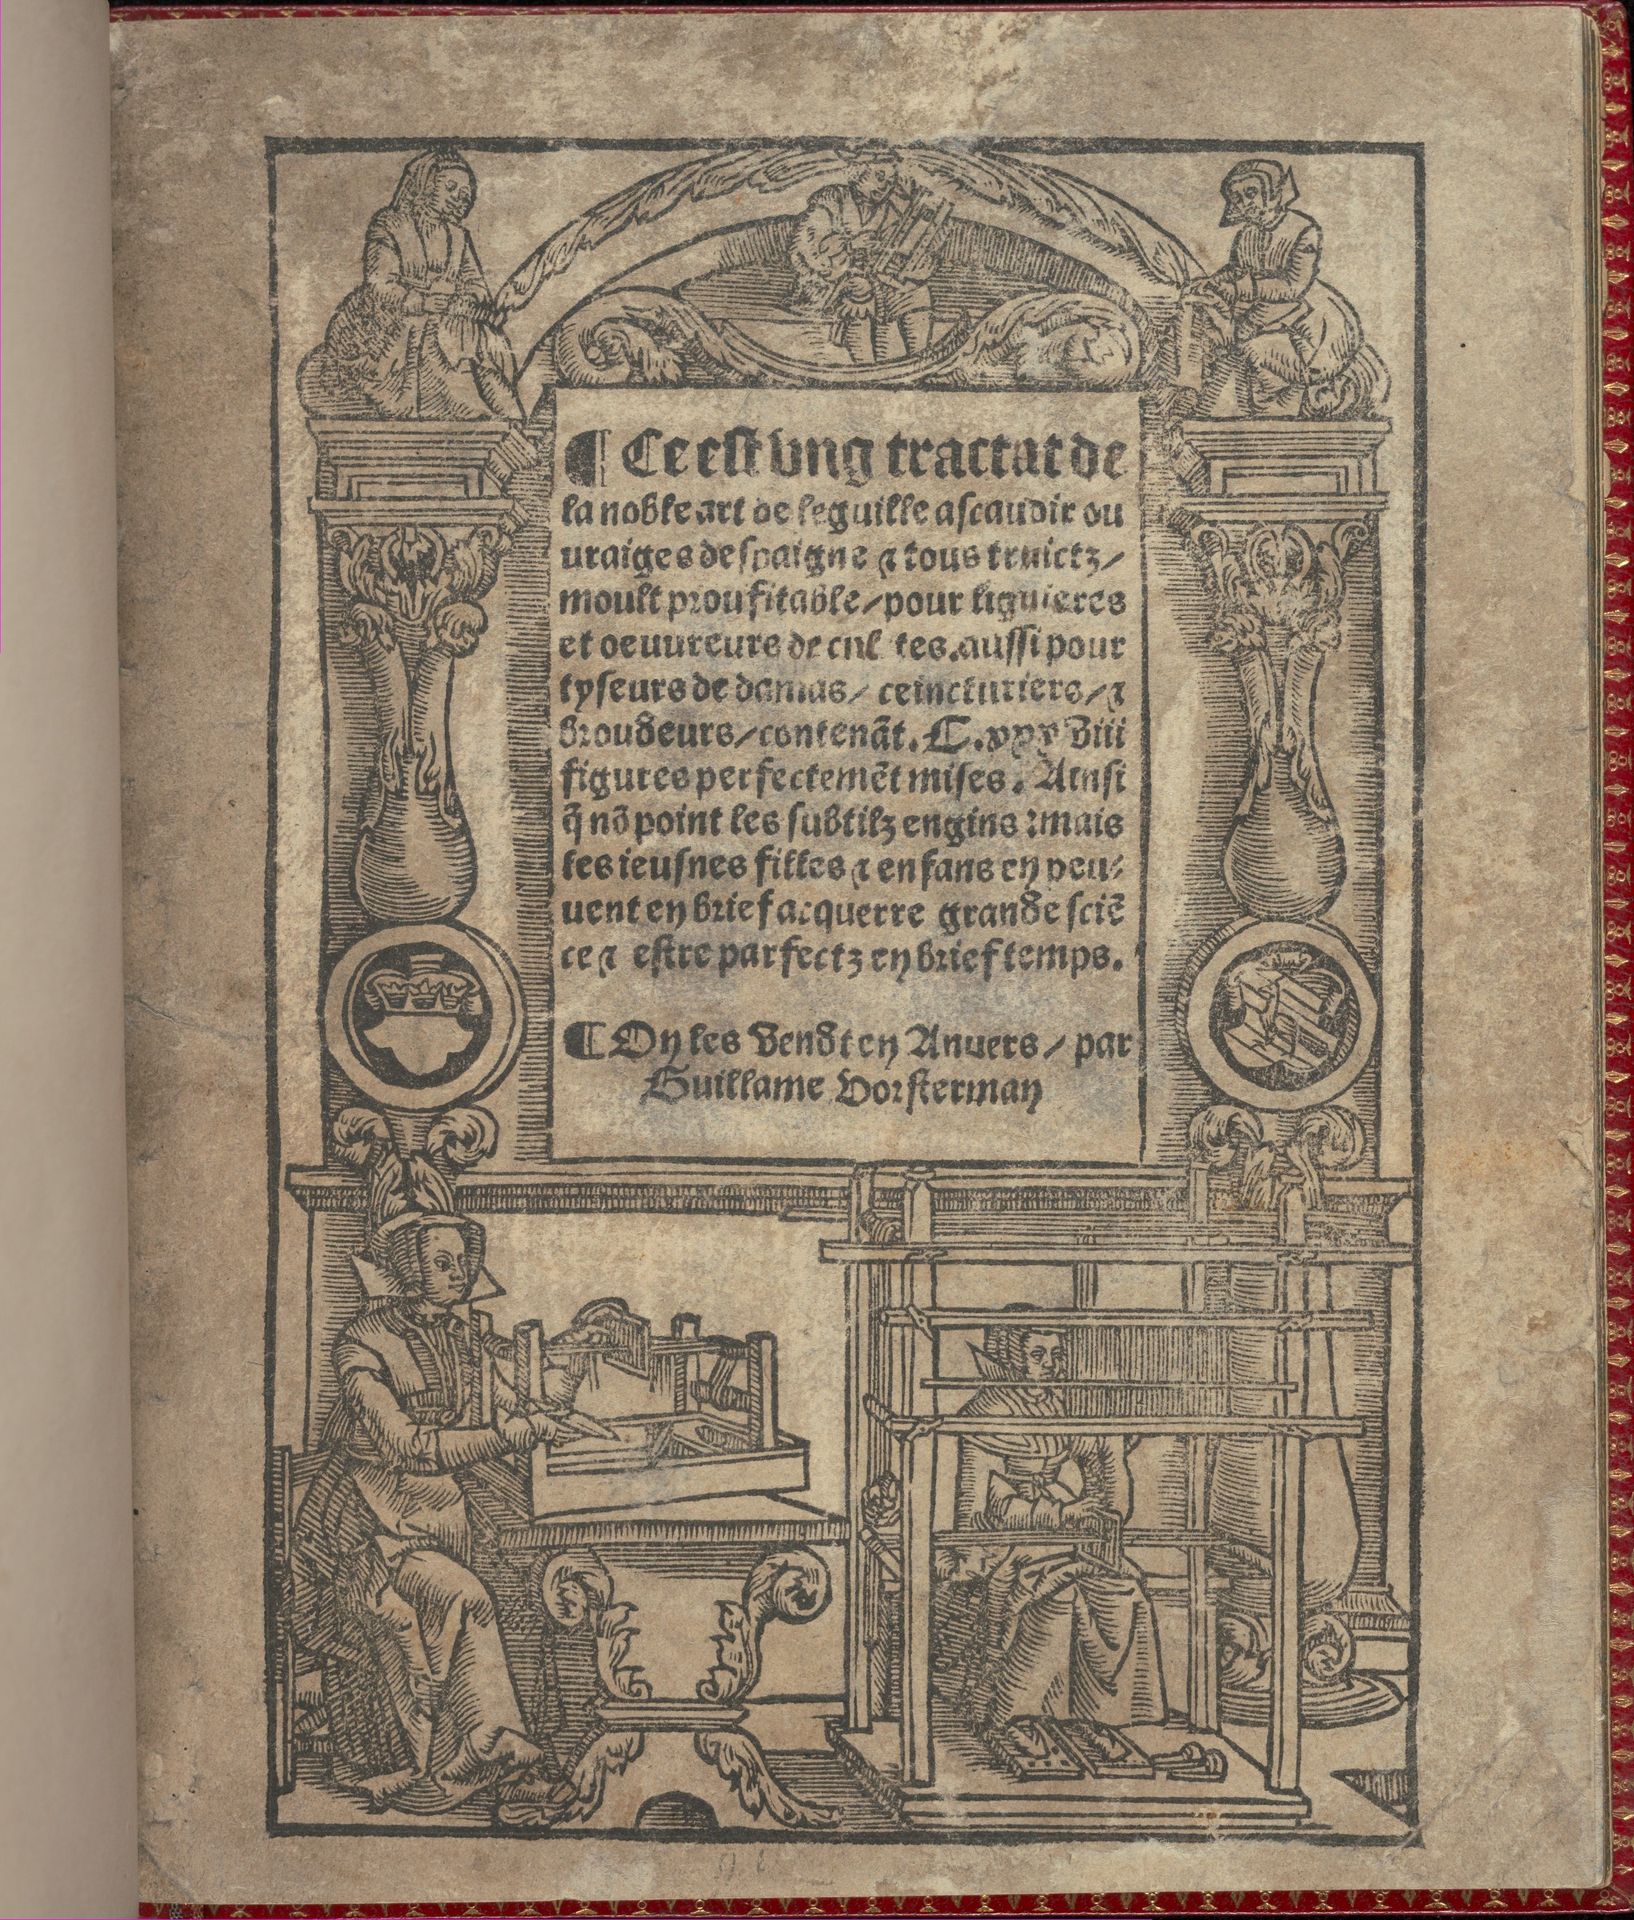 ¶ Ce est vng tractat de
la noble art de leguille ascauoir ou
uraiges despaigne ⁊ tous
moult proufitable/pour
et oeuureurs de aussi pour
tyseurs de damas/ ceincturiers/⁊
broudeurs/contenãt. C.xxxviii
figures perfectemẽt mises. Ainsi
q̃ nõ point les subtilz engins : mais
les ieusnes filles ⁊ enfans en peu⸗
uent en brief acquerre grande sciẽ
ce ⁊ estre parfectz en brief temps.
¶ On les vendt en Anuers/ par
Guillame Vorsterman